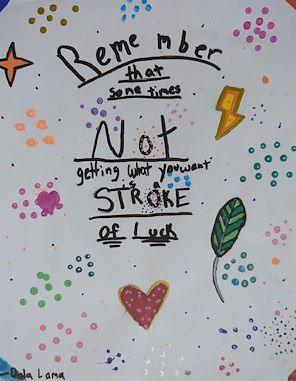 Remember
that
some times
Not
getting what you want
is a
STROKE
of Luck
-Dala Lama